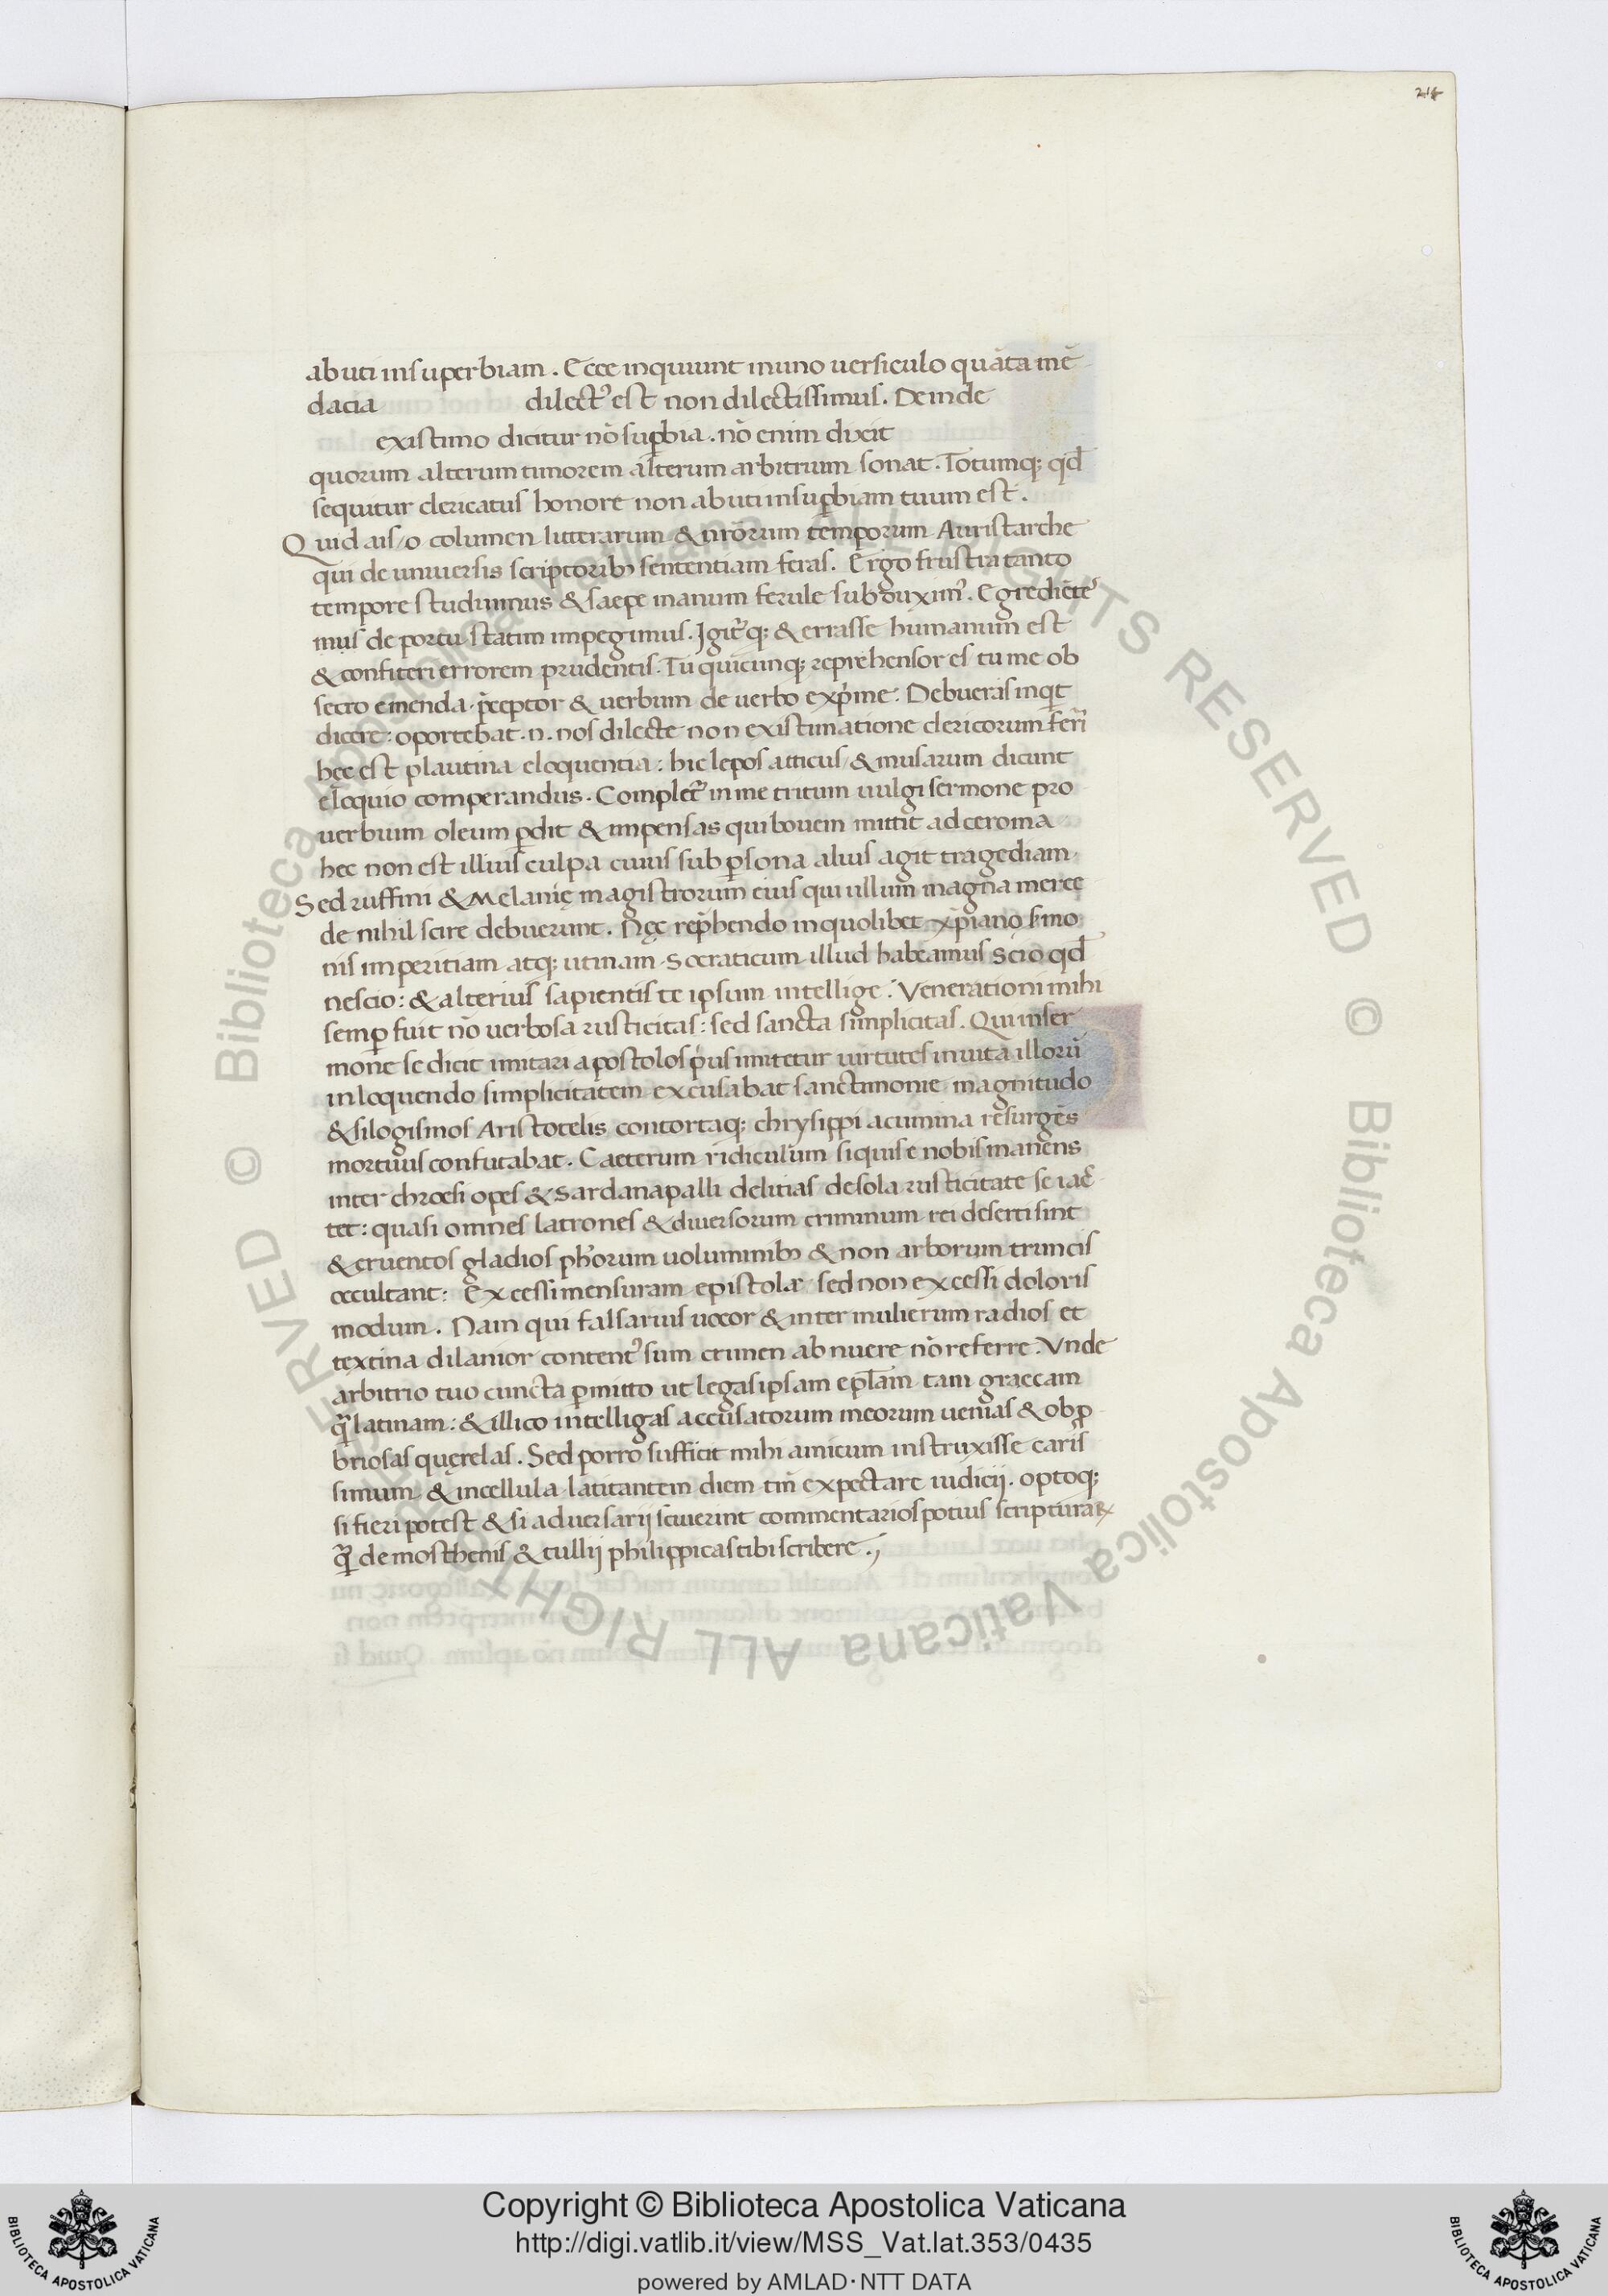 214
abuti insuperbiam . Ecce inquiunt inuno uersiculo quāta mē
dacia dilectꝰ est non dilectissimus . Deinde
existimo dicitur nō suꝑbia . nō enim dixit
quorum alterum timorem alterum arbitrium sonat . Totumq; qd̄
sequitur clericatus honore non abuti insuꝑbiam tuum est .
Quid ais / o columen litterarum & nr̄orum temporum Auristarche
qui de uniuersis scriptorib; sententiam feras . Ergo frustra tanto
tempore studuimus & saepe manum ferule subduximꝰ . Egrediētes
mus de portu statim impegimus . Igit᷑ q; & errasse humanum est
& confiteri errorem prudentis . Tu quicunq; reprehensor es tu me ob
secro emenda . p̄ceptor & uerbum de uerbo exp̄me . Debueras inqͥt
dicere : oportebat .n. nos dilecte non existimatione clericorum ferri
hec est plautina eloquentia : hic lepos atticus / & musarum dicunt
eloquio comperandus . Complet᷑ in me tritum uulgi sermone pro
uerbium oleum ꝑdit & impensas qui bouem mittit ad ceroma
hec non est illius culpa cuius sub ꝑsona alius agit tragediam .
Sed ruffini & Melanię magistrorum eius qui illum magna merce
de nihil scire debuerunt . Nęc rep̄hendo in quolibet xp̄iano s̄mo
nis imperitiam atq; utinam socraticum illud habeamus scio qd̄
nescio : & alterius sapientis te ipsum intellige . Venerationi mihi
semꝑ fuit nō uerbosa rusticitas : sed sancta simplicitas . Qui inser
mone se dicit imitari apostolos pͥus imitetur uirtutes in uita illorū
in loquendo simplicitatem excusabat sanctimonie magnitudo
& silogismos Aristotelis contortaq; chrysippi acumina resurgēs
mortuus confutabat . Caeterum ridiculum siquis e nobis manens
inter chroesi opes & Sardanapalli delitias de sola rusticitate se iac
tet : quasi omnes latrones & diuersorum criminum rei deserti sint
& cruentos gladios ph'orum uoluminib; & non arborum truncis
occultant : Excessi mensuram epistolæ sed non excessi doloris
modum . Nam qui falsarius uocor & inter mulierum radios et
textina dilanior contentꝰ sum crimen abnuere nō referre . Vnde
arbitrio tuo cuncta ꝑmitto ut legas ipsam ep̄lam tam graecam
q̄ꝫ latinam : & illico intelligas accusatorum meorum uenias & obꝓ
briosas quęrelas . Sed porro sufficit mihi amicum instruxisse caris
simum & incellula latitantem diem tm̄ expectare iudicij . optoq;
si fieri potest & si aduersarij siuerint commentarios potius scripturaꝝ
q̄ꝫ demosthenis & tullij philippicas tibi scribere .,
© Biblioteca Apostolica Vaticana ALL RIGHTS RESERVED © Biblioteca Apostolica Vaticana ALL RIGHTS RESERVED
Copyright © Biblioteca Apostolica Vaticana
http://digi.vatlib.it/view/MSS_Vat.lat.353/0435
powered by AMLAD·NTT DATA
BIBLIOTECA APOSTOLICA VATICANA
BIBLIOTECA APOSTOLICA VATICANA